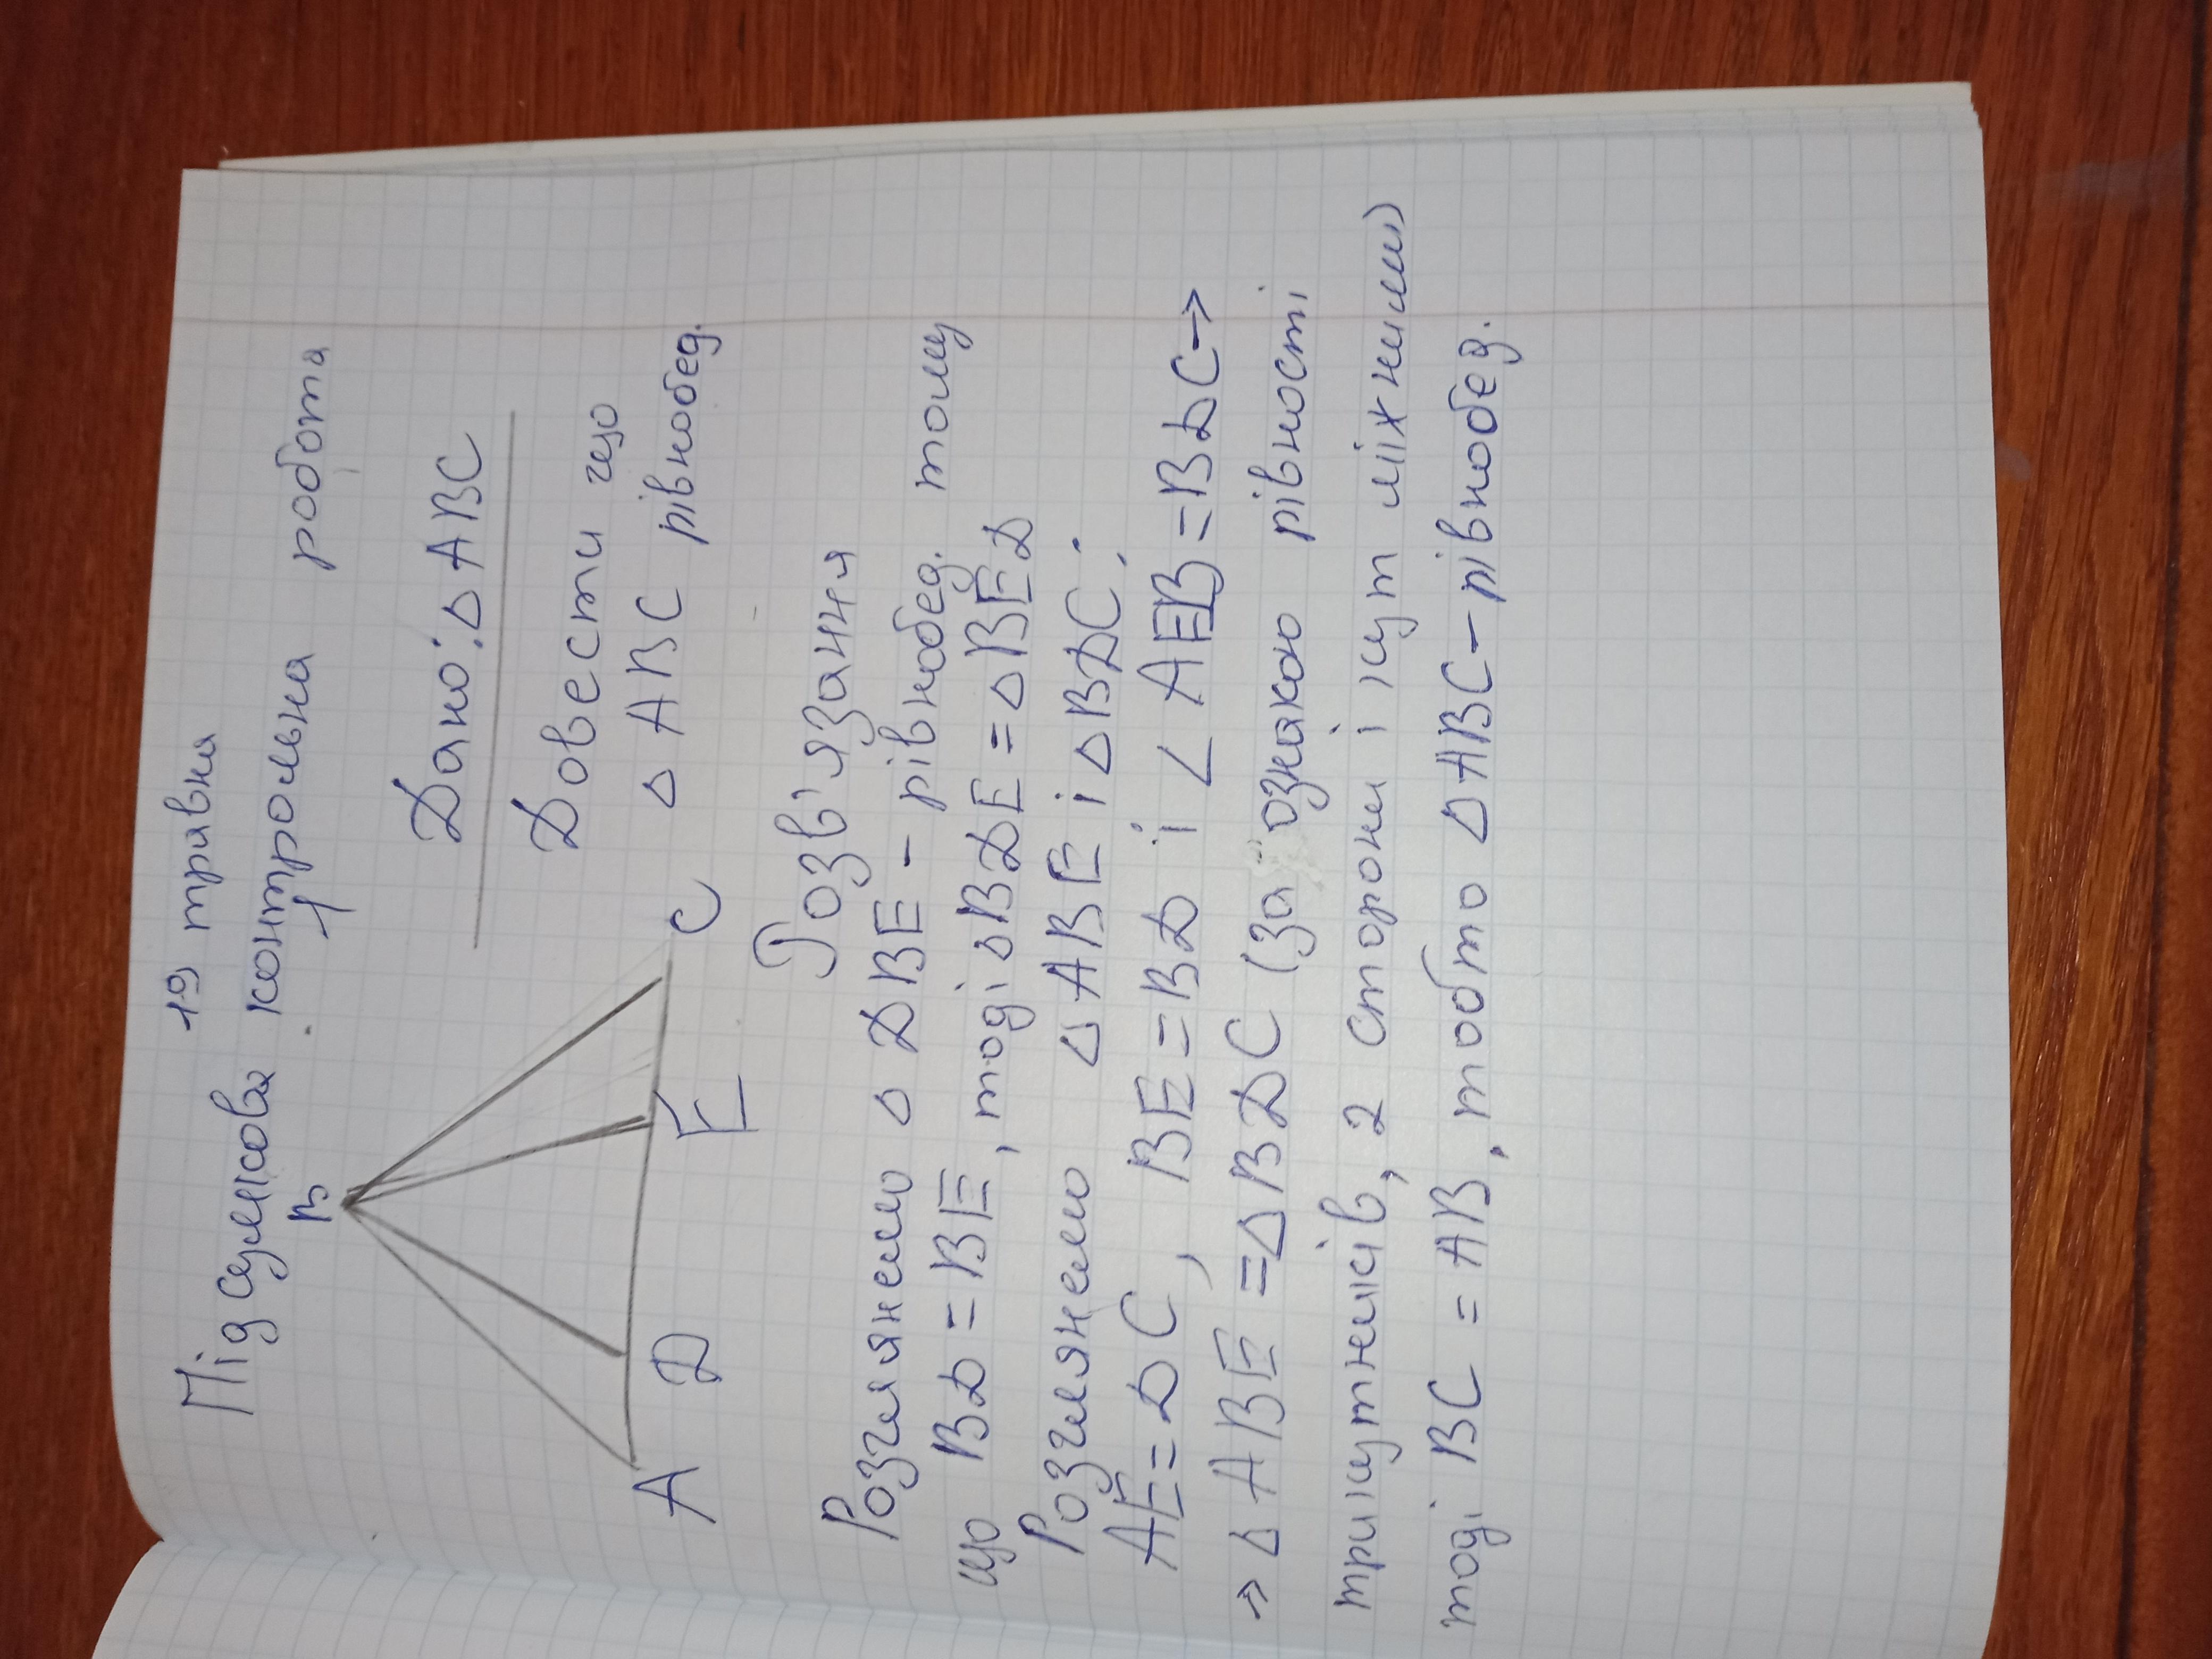 19 травня
Підсумкова контрольна робота
1
В
А
D
E
С
Дано: △ АВС
Довести що
△ АВС рівнобед.
Розв'язання
Розглянемо △ DBE - рівнобед. тому
що BD = BE, тоді △BDE = △BED
Розглянемо △ ABE і △BDC:
AE = DC, BE = BD і < AEB = BDC →
→ △ ABE = △BDC (за ознакою рівності
трикутників, 2 сторони і кут між ними)
тоді BC = AB, тобто △ABC - рівнобед.